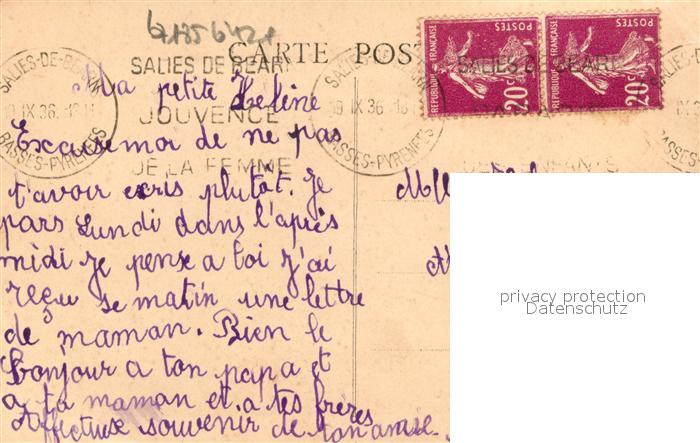 CARTE POST
SALIES-DE-BEARN
19 IX 36
BASSES-PYRENEES
SALIES DE BEARN
JOUVENCE
DE LA FEMME
SALIES DE BEARN
DES ENFANTS
REPUBLIQUE FRANÇAISE
POSTES
20c
REPUBLIQUE FRANÇAISE
POSTES
20c
Ma petite Hélène
Excuse moi de ne pas
t'avoir ecris plutôt. Je
pars Lundi dans l'après
midi Je pense a toi J'ai
reçu se matin une lettre
de maman. Bien le
bonjour a ton papa et
a ta maman et a tes frères
Affectuse souvenir de ton amie.
Mlle
privacy protection
Datenschutz